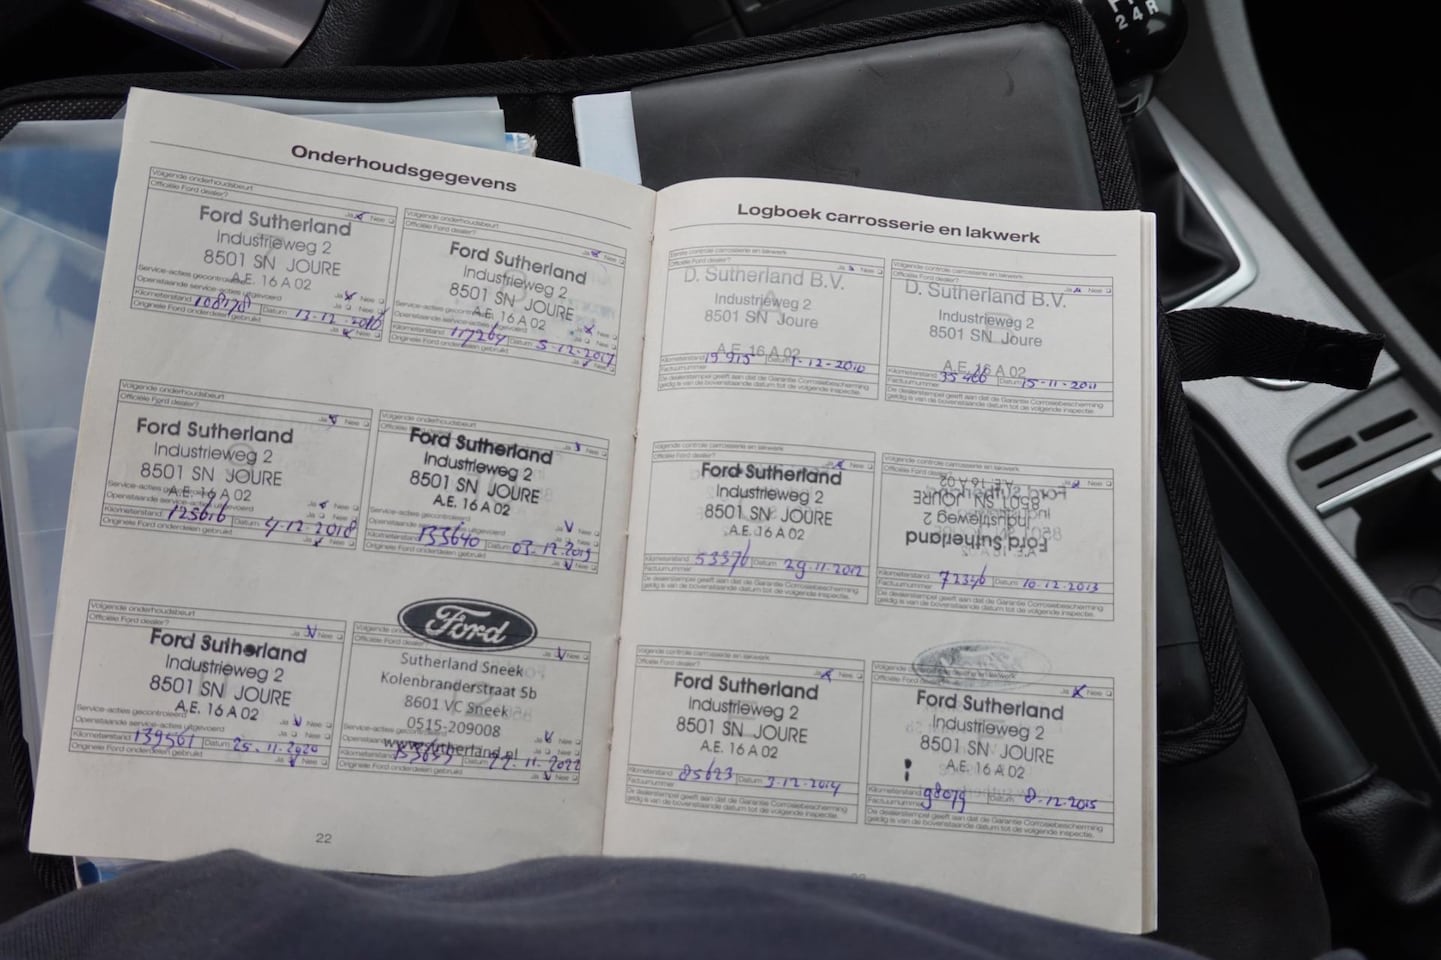 Onderhoudsgegevens
Volgende onderhoudsbeurt
Officiële Ford dealer? Ja Nee
Ford Sutherland
Industrieweg 2
8501 SN JOURE
A.E. 16 A 02
Service-acties gecontroleerd
Openstaande service-acties uitgevoerd Ja Nee
Kilometerstand 108178 Datum 13-12-2016
Originele Ford onderdelen gebruikt Ja Nee
Volgende onderhoudsbeurt
Officiële Ford dealer? Ja Nee
Ford Sutherland
Industrieweg 2
8501 SN JOURE
A.E. 16 A 02
Kilometerstand 117267 Datum 5-12-2017
Originele Ford onderdelen gebruikt Ja Nee
Volgende onderhoudsbeurt
Officiële Ford dealer? Ja Nee
Ford Sutherland
Industrieweg 2
8501 SN JOURE
A.E. 16 A 02
Kilometerstand 125616 Datum 4-12-2018
Originele Ford onderdelen gebruikt Ja Nee
Volgende onderhoudsbeurt
Officiële Ford dealer? Ja
Ford Sutherland
Industrieweg 2
8501 SN JOURE
A.E. 16 A 02
Service-acties gecontroleerd Ja Nee
Openstaande service-acties uitgevoerd Ja Nee
Kilometerstand 133640 Datum 03.12.2019
Originele Ford onderdelen gebruikt Ja Nee
Volgende onderhoudsbeurt
Officiële Ford dealer? Ja Nee
Ford Sutherland
Industrieweg 2
8501 SN JOURE
A.E. 16 A 02
Service-acties gecontroleerd Ja Nee
Openstaande service-acties uitgevoerd Ja Nee
Kilometerstand 139561 Datum 25.11.2020
Originele Ford onderdelen gebruikt Ja Nee
Ford
Volgende onderhoudsbeurt
Officiële Ford dealer? Ja Nee
Sutherland Sneek
Kolenbranderstraat 5b
8601 VC Sneek
0515-209008
www.sutherland.nl
Kilometerstand Datum 22.11.2022
Originele Ford onderdelen gebruikt Ja Nee
22
Logboek carrosserie en lakwerk
Eerste controle carrosserie en lakwerk
Officiële Ford dealer? Ja Nee
D. Sutherland B.V.
Industrieweg 2
8501 SN Joure
A.E. 16 A 02
Kilometerstand 19915 Datum 1-12-2010
Factuurnummer
De dealerstempel geeft aan dat de Garantie Corrosiebescherming
geldig is van de bovenstaande datum tot de volgende inspectie.
Volgende controle carrosserie en lakwerk
Officiële Ford dealer? Ja Nee
D. Sutherland B.V.
Industrieweg 2
8501 SN Joure
A.E. 16 A 02
Kilometerstand 35466 Datum 15-11-2011
Factuurnummer
De dealerstempel geeft aan dat de Garantie Corrosiebescherming
geldig is van de bovenstaande datum tot de volgende inspectie.
Volgende controle carrosserie en lakwerk
Officiële Ford dealer? Ja Nee
Ford Sutherland
Industrieweg 2
8501 SN JOURE
A.E. 16 A 02
Kilometerstand 53376 Datum 29.11.2012
Factuurnummer
De dealerstempel geeft aan dat de Garantie Corrosiebescherming
geldig is van de bovenstaande datum tot de volgende inspectie.
Volgende controle carrosserie en lakwerk
Officiële Ford dealer? Ja Nee
A.E. 16 A 02
8501 SN JOURE
Industrieweg 2
Ford Sutherland
Kilometerstand 72346 Datum 10.12.2013
Factuurnummer
De dealerstempel geeft aan dat de Garantie Corrosiebescherming
geldig is van de bovenstaande datum tot de volgende inspectie.
Volgende controle carrosserie en lakwerk
Officiële Ford dealer? Ja Nee
Ford Sutherland
Industrieweg 2
8501 SN JOURE
A.E. 16 A 02
Kilometerstand 85623 Datum 3.12.2014
Factuurnummer
De dealerstempel geeft aan dat de Garantie Corrosiebescherming
geldig is van de bovenstaande datum tot de volgende inspectie.
Volgende controle carrosserie en lakwerk
Officiële Ford dealer? Ja Nee
Ford Sutherland
Industrieweg 2
8501 SN JOURE
A.E. 16 A 02
Kilometerstand 98079 Datum 8.12.2015
Factuurnummer
De dealerstempel geeft aan dat de Garantie Corrosiebescherming
geldig is van de bovenstaande datum tot de volgende inspectie.
2 4 R